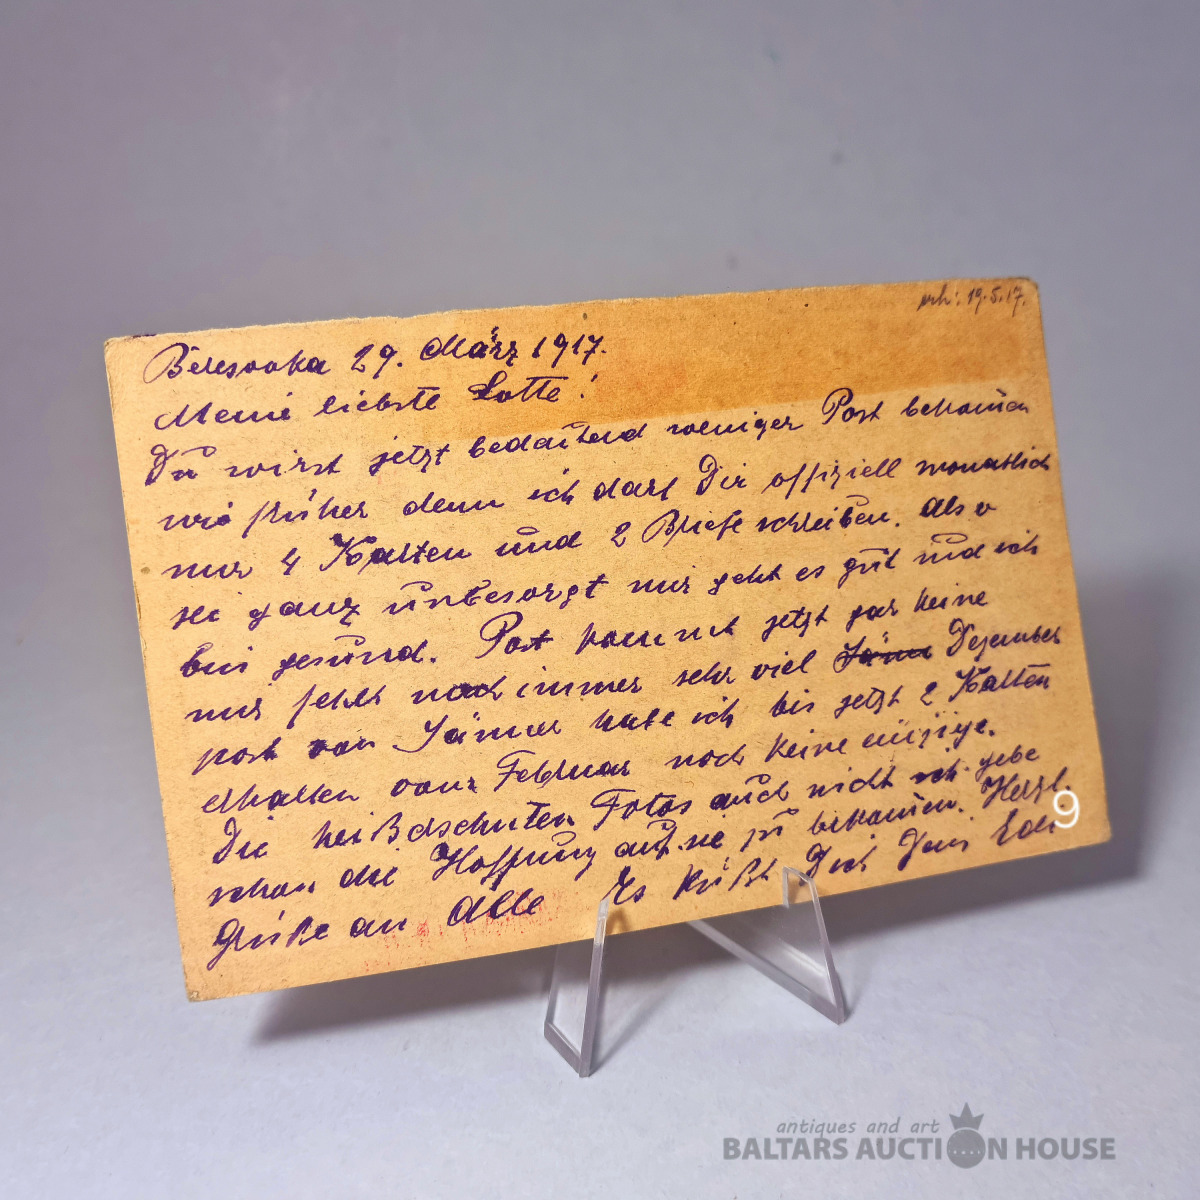 erh: 19.5.17.
Beresovka 29. März 1917.
Meine liebste Lotte!
Du wirst jetzt bedeutend weniger Post bekommen
wie früher denn ich darf Dir offiziell monatlich
nur 4 Karten und 2 Briefe schreiben. Also
sei ganz unbesorgt mir geht es gut und ich
bin gesund. Post kommt jetzt gar keine
mir fehlt noch immer sehr viel Dezember
post von Jänner habe ich bis jetzt 2 Karten
erhalten vom Februar noch keine einzige.
Die heißdschuten Fotos auch nicht ich gebe
schon die Hoffnung auf sie zu bekommen. Herzl.
Grüße an Alle Es küßt Dich Dein
9
antiques and art
BALTARS AUCTION HOUSE